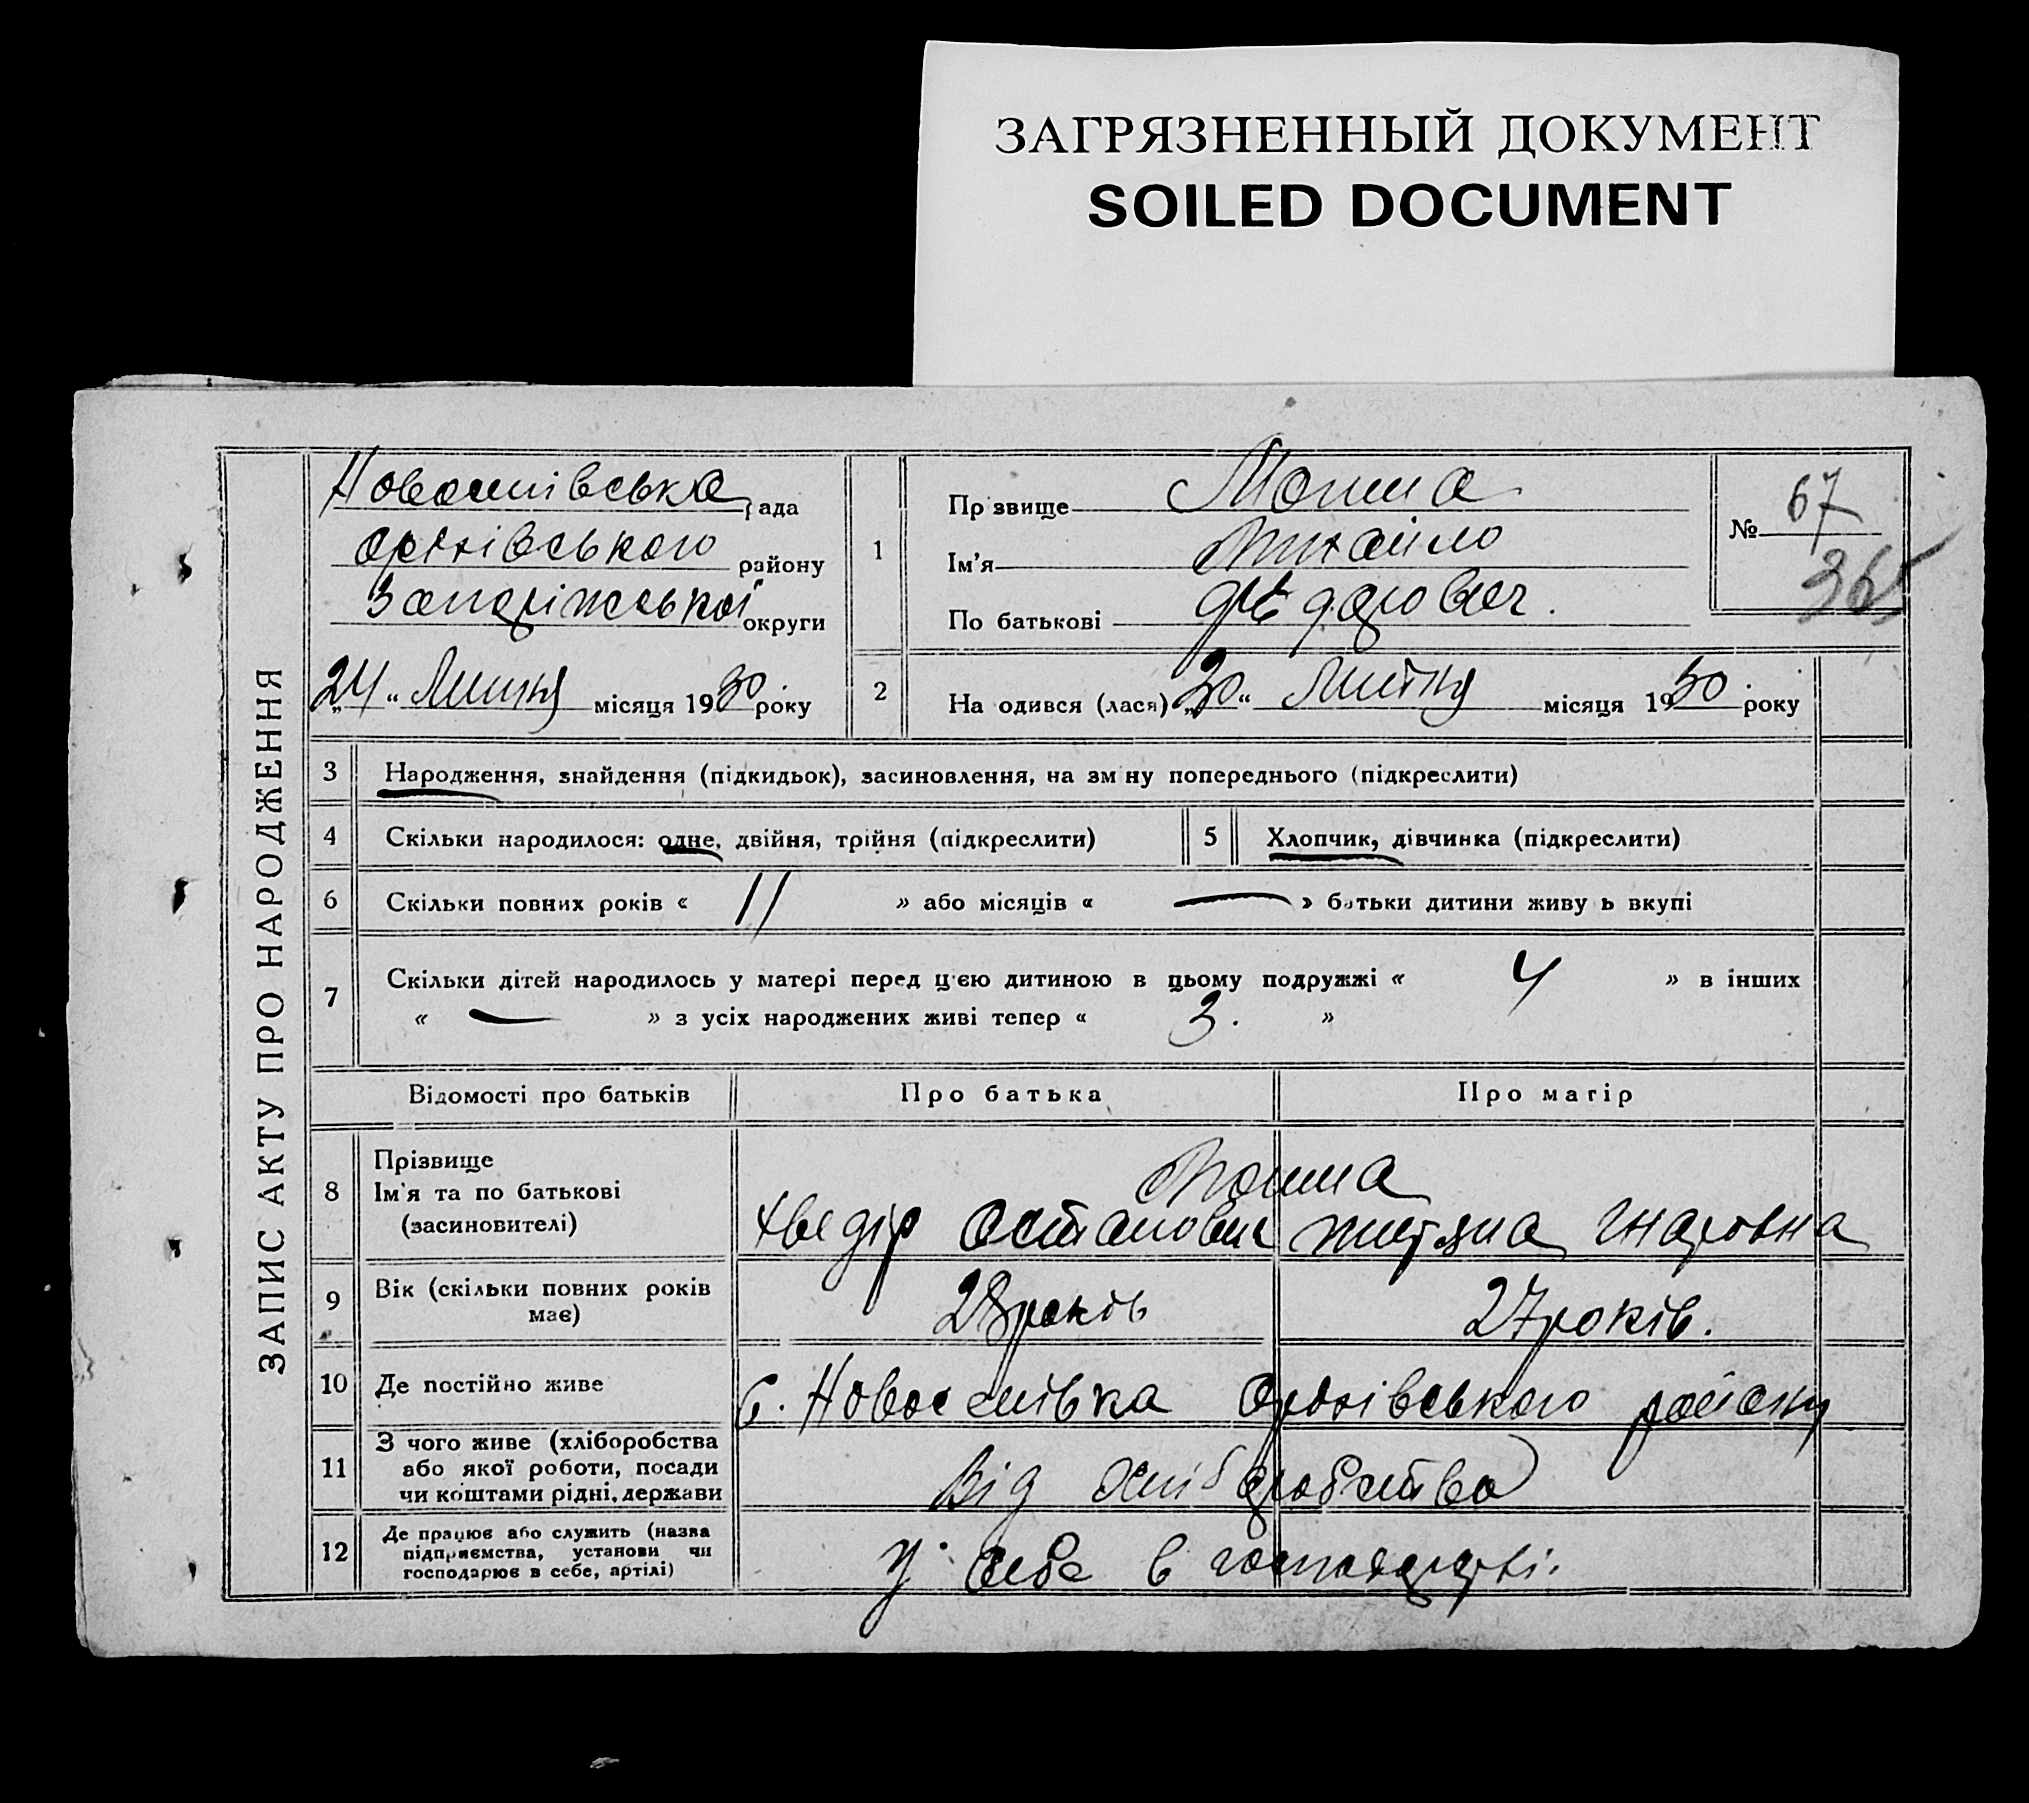 ЗАГРЯЗНЕННЫЙ ДОКУМЕНТ
SOILED DOCUMENT
ЗАПИС АКТУ ПРО НАРОДЖЕННЯ
рада
Оріхівського району
Запоріжської округи
„24“ Липня місяця 1930 року
1
Прізвище
Ім'я Михайло
По батькові
№ 67
365
2
На одився (лася) „20“ Липня місяця 1930 року
3 Народження, знайдення (підкидьок), засиновлення, на зм ну попереднього (підкреслити)
4 Скільки народилося: одне, двійня, трійня (підкреслити)
5 Хлопчик, дівчинка (підкреслити)
6 Скільки повних років « 11 » або місяців « — » батьки дитини живу ь вкупі
7 Скільки дітей народилось у матері перед ц'єю дитиною в цьому подружжі « 4 » в інших
« — » з усіх народжених живі тепер « 3. »
Відомості про батьків Про батька Про матір
8 Прізвище
Ім'я та по батькові
(засиновителі)
Хведір Остапович
9 Вік (скільки повних років
має)
28 років 27 років.
10 Де постійно живе
с. Оріхівського району
11 З чого живе (хліборобства
або якої роботи, посади
чи коштами рідні, держави
Від хліборобства
12 Де працює або служить (назва
підприємства, установи чи
господарює в себе, артілі)
У себе в господарстві.